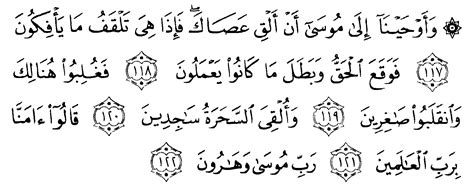 ۞ وَأَوْحَيْنَآ إِلَىٰ مُوسَىٰٓ أَنْ أَلْقِ عَصَاكَ ۖ فَإِذَا هِىَ تَلْقَفُ مَا يَأْفِكُونَ
﴿١١٧﴾ فَوَقَعَ الْحَقُّ وَبَطَلَ مَا كَانُوا۟ يَعْمَلُونَ ﴿١١٨﴾ فَغُلِبُوا۟ هُنَالِكَ
وَانقَلَبُوا۟ صَٰغِرِينَ ﴿١١٩﴾ وَأُلْقِىَ السَّحَرَةُ سَٰجِدِينَ ﴿١٢٠﴾ قَالُوٓا۟ ءَامَنَّا
بِرَبِّ الْعَٰلَمِينَ ﴿١٢١﴾ رَبِّ مُوسَىٰ وَهَٰرُونَ ﴿١٢٢﴾